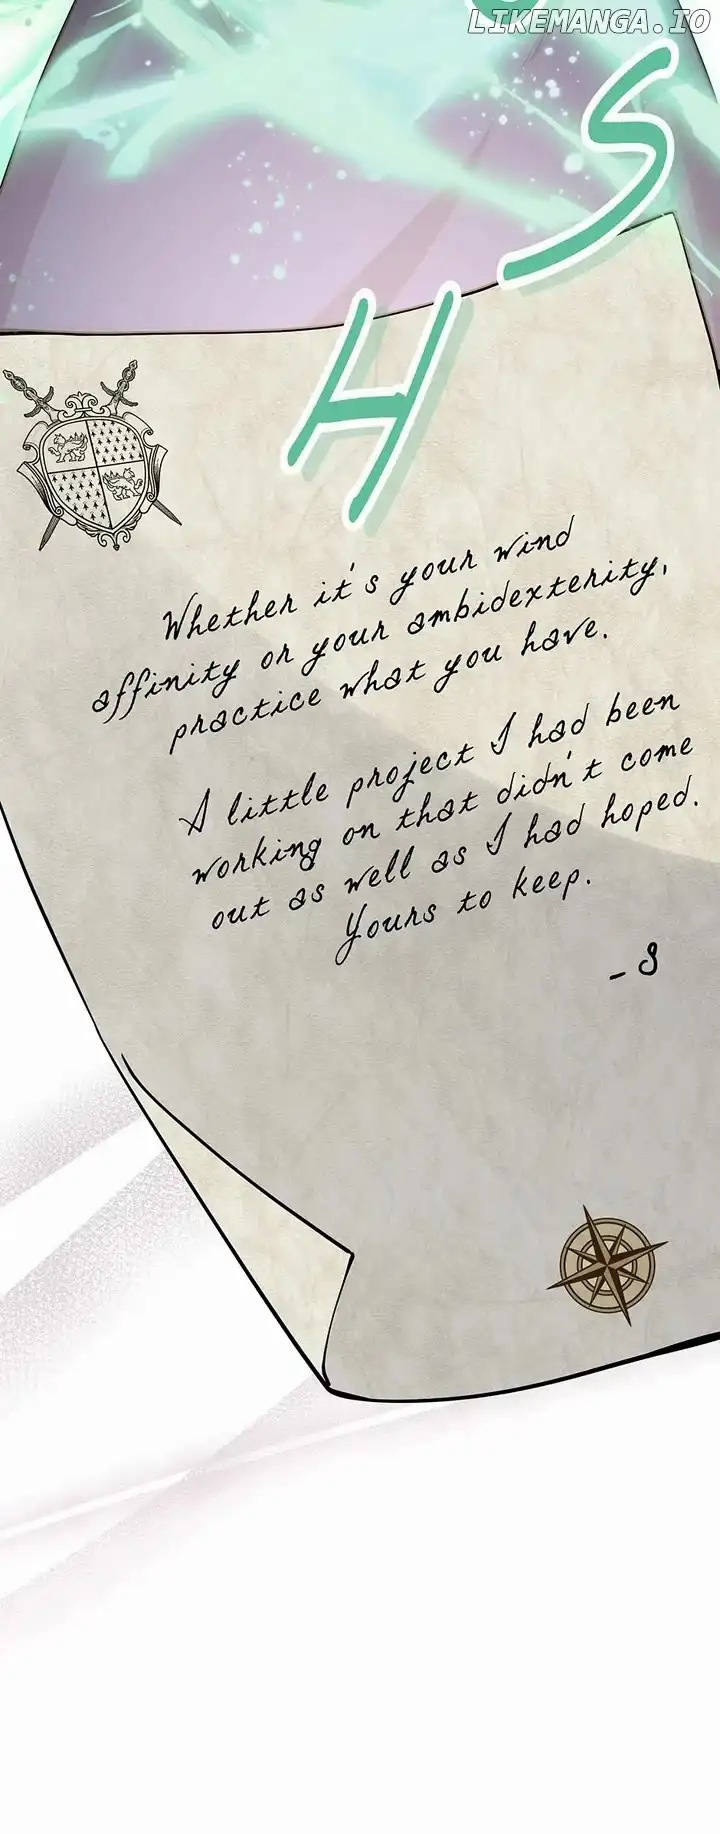 LIKEMANGA.IO
S
H
Whether it's your wind
affinity or your ambidexterity,
practice what you have.
A little project I had been
working on that didn't come
out as well as I had hoped.
Yours to keep.
- S